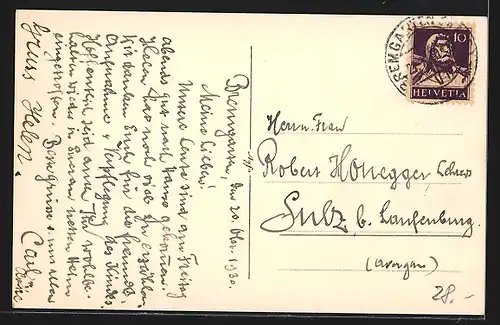 Bremgarten, den 20. Okt. 1930.
Meine Lieben!
Unsere Leute sind am Freitag
abends gut nach Hause gekommen.
Haben uns noch viel zu erzählen.
Wir danken Euch für die freundl.
Aufnahme & Verpflegung des Kindes.
Hoffentlich seid auch Ihr wohlbe-
halten wieder in Eurem netten Heim
eingetroffen. Beste Grüsse v. uns allen
Carl
Gruss Helen.
BREMGARTEN
10
HELVETIA
Herrn Frau
Robert Honegger, Lehrers
Sulz b. Laufenburg.
(Aargau)
28.-